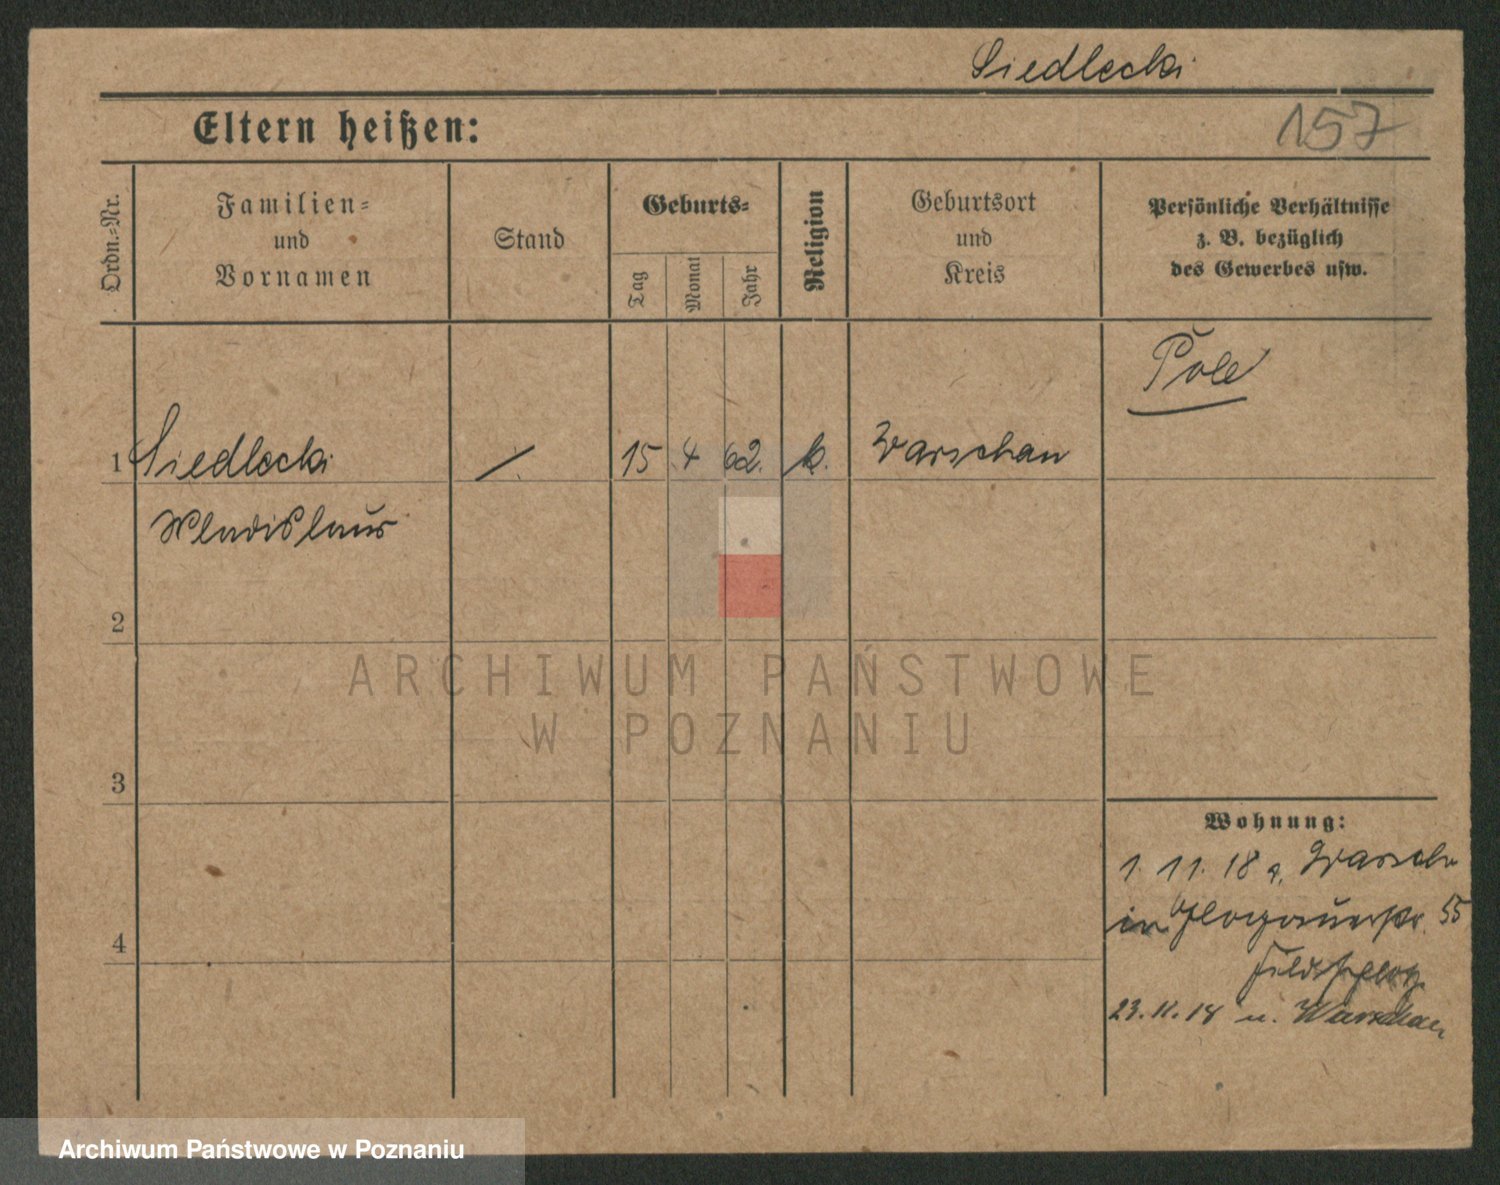 Siedlecki
Eltern heißen:
157
Ordn.-Nr.
Familien-
und
Vornamen
Stand
Geburts-
Tag
Monat
Jahr
Religion
Geburtsort
und
Kreis
Persönliche Verhältnisse
z. B. bezüglich
des Gewerbes usw.
Pole
1 Siedlecki /. 15 4 62. k. Warschau
Wladislaus
2
ARCHIWUM PAŃSTWOWE
W POZNANIU
3
Wohnung:
1. 11. 18 a. Warsch
in Glogauerstr. 55
4
23. 11. 18 n. Warschau
Archiwum Państwowe w Poznaniu